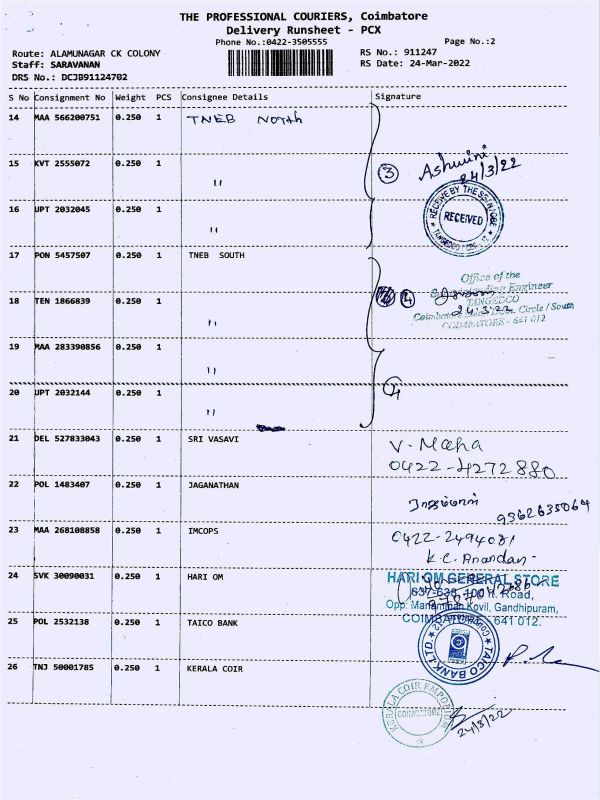 THE PROFESSIONAL COURIERS, Coimbatore
Delivery Runsheet - PCX
Phone No.:0422-3505555
Page No.:2
Route: ALAMUNAGAR CK COLONY
RS No.: 911247
Staff: SARAVANAN
RS Date: 24-Mar-2022
DRS No.: DCJB91124702
S No Consignment No Weight PCS Consignee Details Signature
14 MAA 566200751 0.250 1 TNEB NOTth
15 KVT 2555072 0.250 1 "
3 Ashwini
24/3/22
16 UPT 2032045 0.250 1 "
RECEIVED
17 PON 5457507 0.250 1 TNEB SOUTH
Office of the
Engineer
18 TEN 1866839 0.250 1 "
4
TANGEDCO
24.3.22
Circle / South
COIMBATORE - 641 012
19 MAA 283390856 0.250 1 "
20 UPT 2032144 0.250 1 "
4
21 DEL 527833043 0.250 1 SRI VASAVI
V. Maha
0422-4272880
22 POL 1483407 0.250 1 JAGANATHAN
9362635064
23 MAA 268108858 0.250 1 IMCOPS
K.C. Anandan
24 SVK 30090031 0.250 1 HARI OM
HARI OM GENERAL STORE
100 ft. Road,
Opp. Kovil, Gandhipuram,
COIMBATORE - 641 012.
25 POL 2532138 0.250 1 TAICO BANK
TAICO BANK LTD.
26 TNJ 50001785 0.250 1 KERALA COIR
KERALA COIR EMPORIUM
COIMBATORE
24/3/22